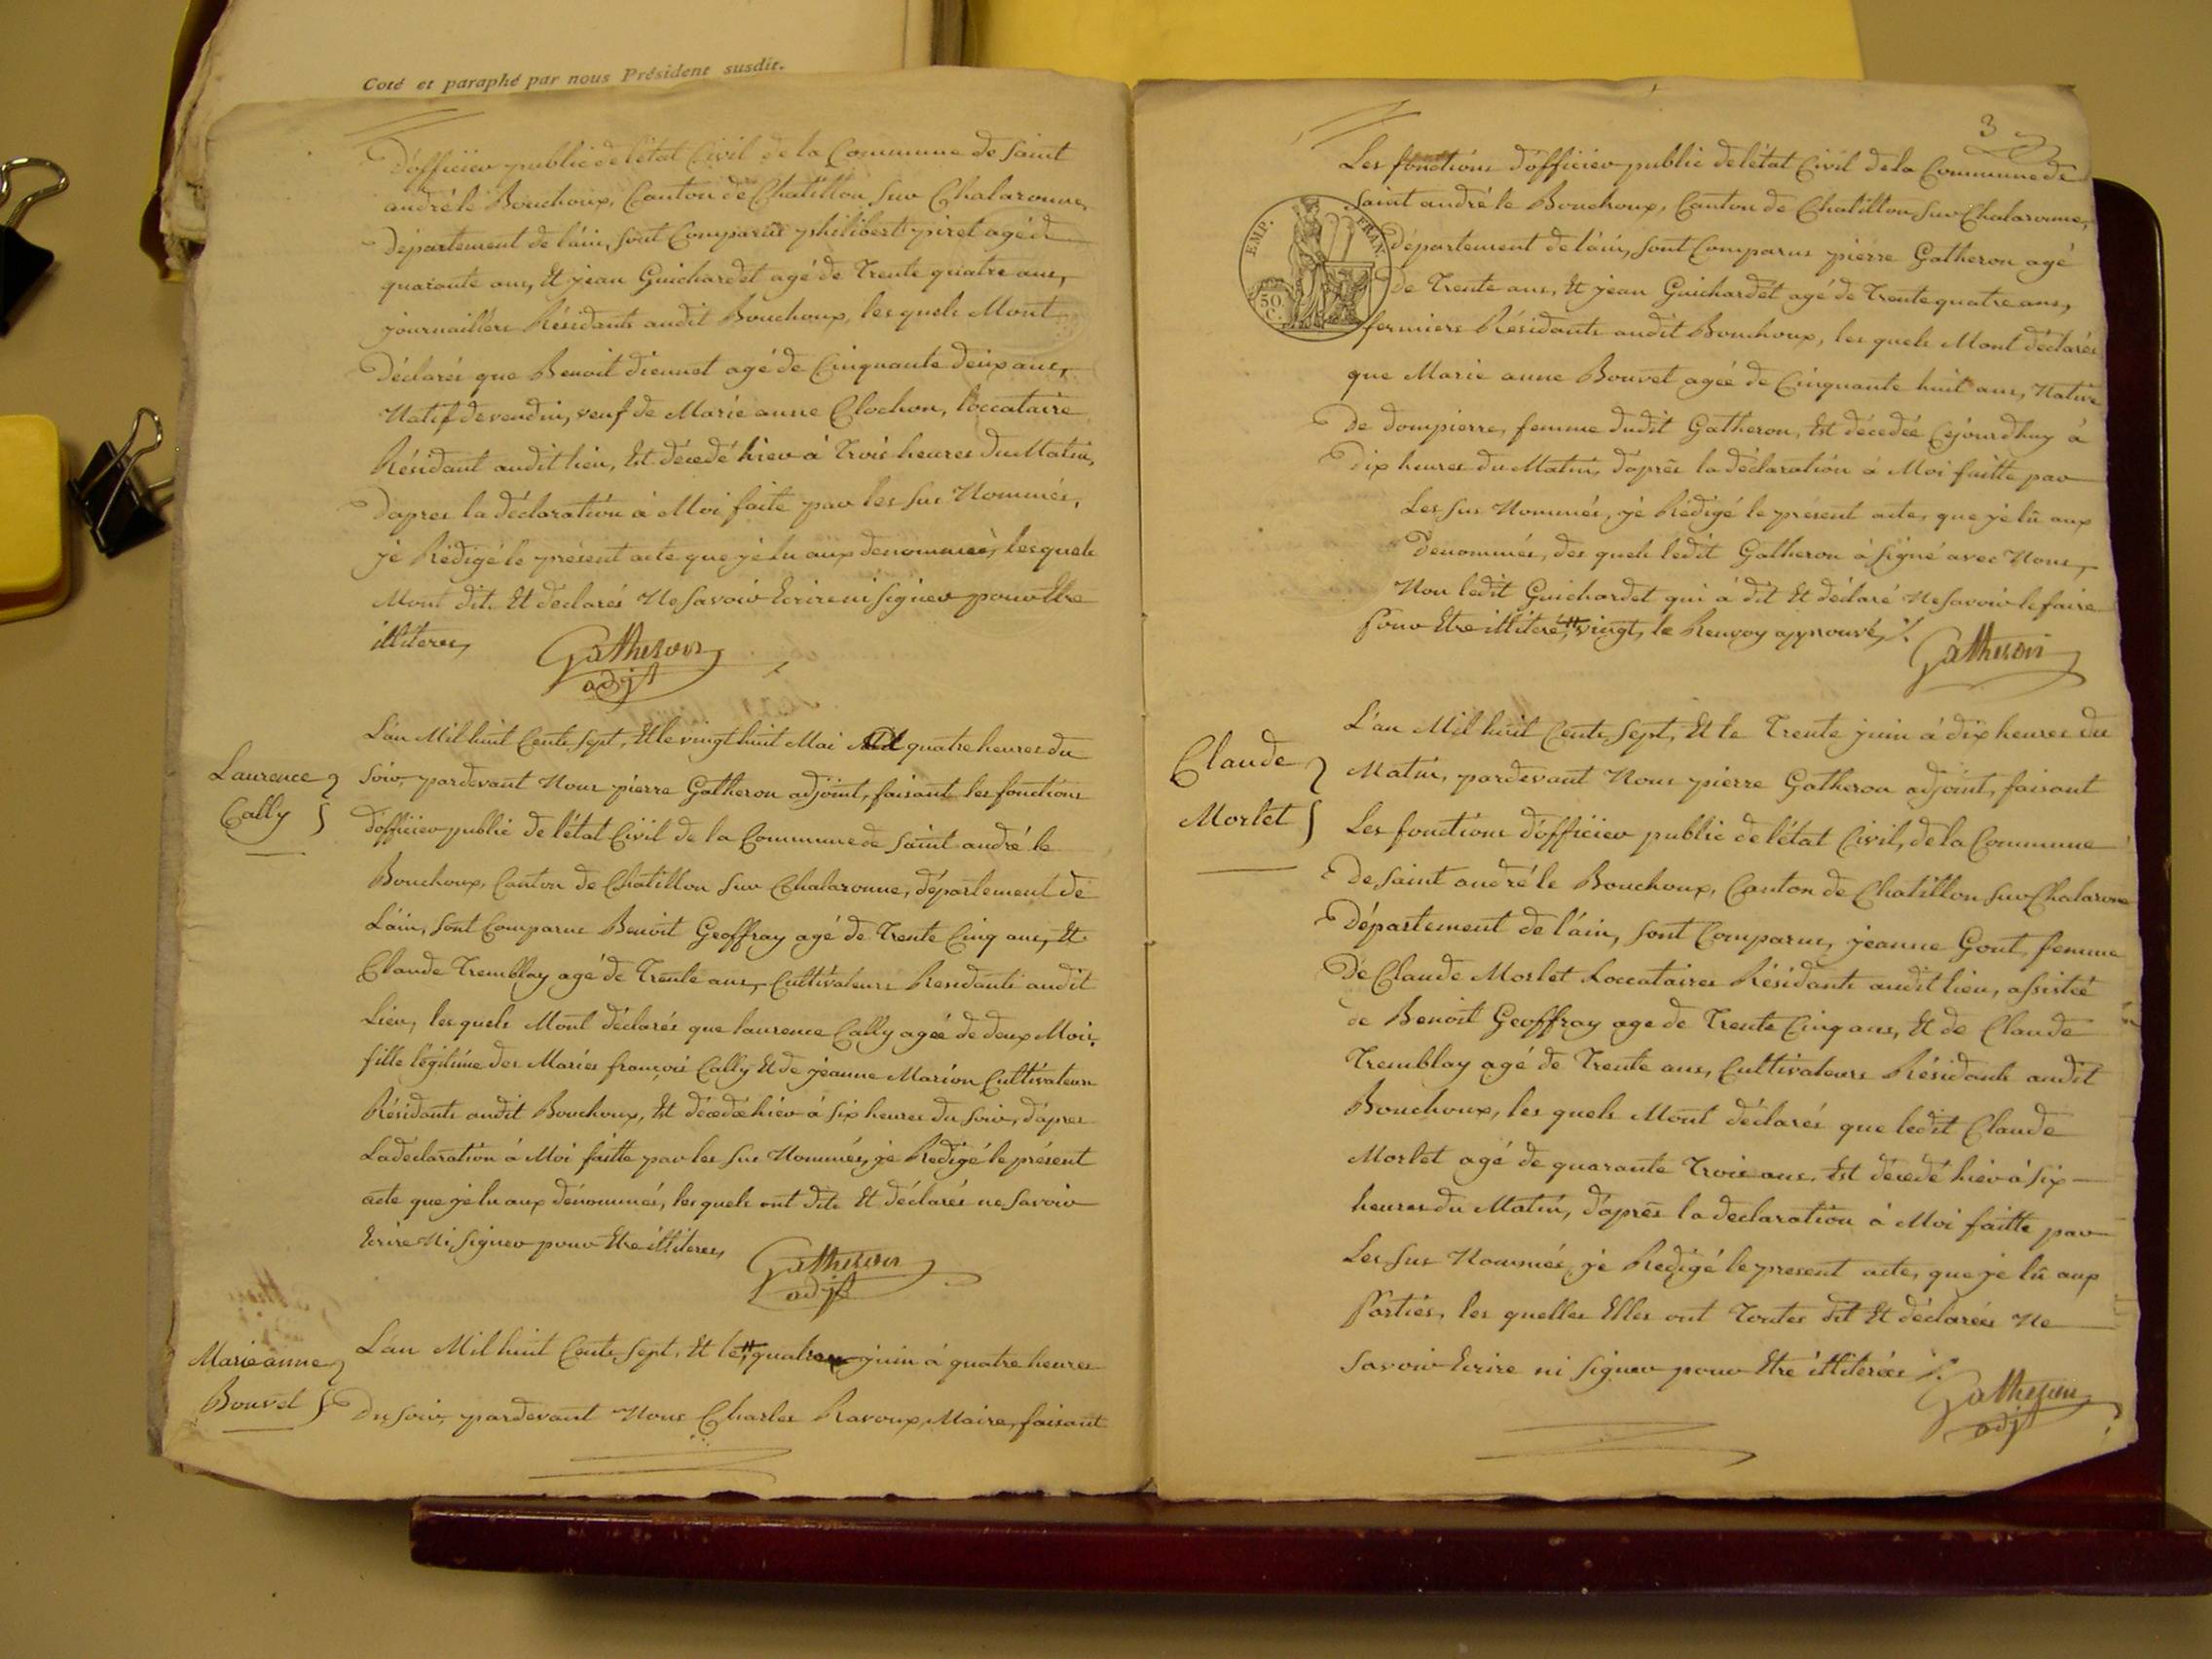 Coté et paraphé par nous Président susdit.
D'officier public de l'état Civil de la Commune de Saint
andré le Bouchoux, Canton de Chatillon sur Chalaronne,
Département de l'ain, sont Comparus philibert piret agé de
quarante ans, Et jean Guichardet agé de Trente quatre ans,
journailiers Résidants audit Bouchoux, les quels Mont
Déclarés que Benoit dieunet agé de Cinquante deux ans,
Natif de vendin, veuf de Marie anne Clochon, loccataire
Résidant audit lieu, Est décedé hier à Trois heures Du Matin,
Dapres la déclaration à Moi faite par les sus Nommés,
jé Rédigé le présent acte que jé lu aux denommés, les quels
Mont dits Et declarés Ne savoir Ecrire ni signer pour Etre
illiteres,
Gatheron
adjt
Laurence
Cally
L'an Mil huit Cents sept, Et le vingt huit Mai à quatre heures du
soir, pardevant Nous pierre Gatheron adjoint, faisant les fonctions
D'officier public de l'état Civil de la Commune de Saint andré le
Bouchoux, Canton de Chatillon sur Chalaronne, département de
L'ain, sont Comparus Benoit Geoffray agé de Trente Cinq ans, Et
Claude Tremblay agé de Trente ans, Cultivateurs Residants audit
Lieu, les quels Mont déclarés que laurence Cally agée de deux Mois,
fille légitime des Mariés françois Cally Et de jeanne Marion Cultivateurs
Résidants audit Bouchoux, Est décedée hier à six heures du soir, d'apres
La déclaration à Moi faitte par les sus Nommés, jé Redigé le présent
acte que jé lu aux dénommés, les quels ont dits Et déclarés ne savoir
Ecrire Ni signer pour Etre illiteres,
Gatheron
adjt
Marie anne
Bouvet
L'an Mil huit Cents sept, Et le # quatre juin à quatre heures
Du soir, pardevant Nous Charles Ravoux, Maire, faisant
3
Les fonctions d'officier public de l'état Civil de la Commune de
Saint andré le Bouchoux, Canton de Chatillon sur Chalaronne,
EMP. FRAN.
50 C.
Département de l'ain, sont Comparus pierre Gatheron agé
De Trente ans, Et jean Guichardet agé de Trente quatre ans,
fermiers Résidants audit Bouchoux, les quels Mont déclarés
que Marie anne Bouvet agée de Cinquante huit ans, Native
De dompierre, femme dudit Gatheron, Est décedée Cejourdhuy à
Dix heures du Matin, d'aprês la déclaration à Moi faitte par
Les sus Nommés, jé Rédigé le présent acte, que jé lû aux
Denommés, des quels ledit Gatheron à signé avec Nous,
Non ledit Guichardet qui à dit Et déclaré Ne savoir le faire
Pour Etre illiteré, # vingt, le Renvoy approuvé, /.
Gatheron
Claude
Morlet
L'an Mil huit Cents sept, Et le Trente juin à dix heures du
Matin, pardevant Nous pierre Gatheron adjoint, faisant
Les fonctions d'officier public de l'état Civil, de la Commune
De Saint andré le Bouchoux, Canton de Chatillon sur Chalaronne
Département de l'ain, sont Comparus, jeanne Gout, femme
De Claude Morlet Loccataires Résidants audit lieu, assistée
de Benoit Geoffray age de Trente Cinq ans, Et de Claude
Tremblay agé de Trente ans, Cultivateurs Résidants audit
Bouchoux, les quels Mont déclarés que ledit Claude
Morlet agé de quarante Trois ans, Est décedé hier à six
heures du Matin, d'aprês la declaration à Moi faitte par
Les sus Nommés, jé Redigé le present acte, que jé lû aux
Parties, les quelles Elles ont Toutes dit Et déclarées Ne
savoir Ecrire ni signer pour Etre illiterées /.
Gatheron
adjt